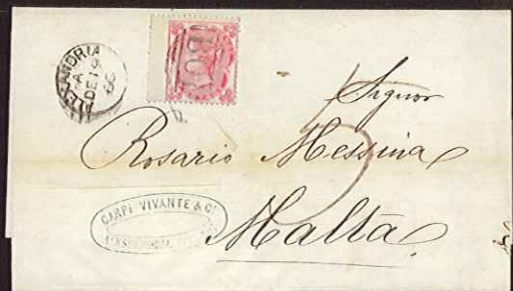 ALEXANDRIA
A
DE 19
66
B01
Signor
Rosario Messina
Malta
CARPI VIVANTE & C!